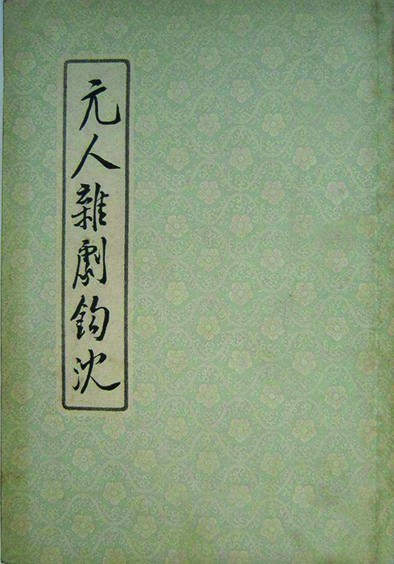 元人雜劇鈎沈